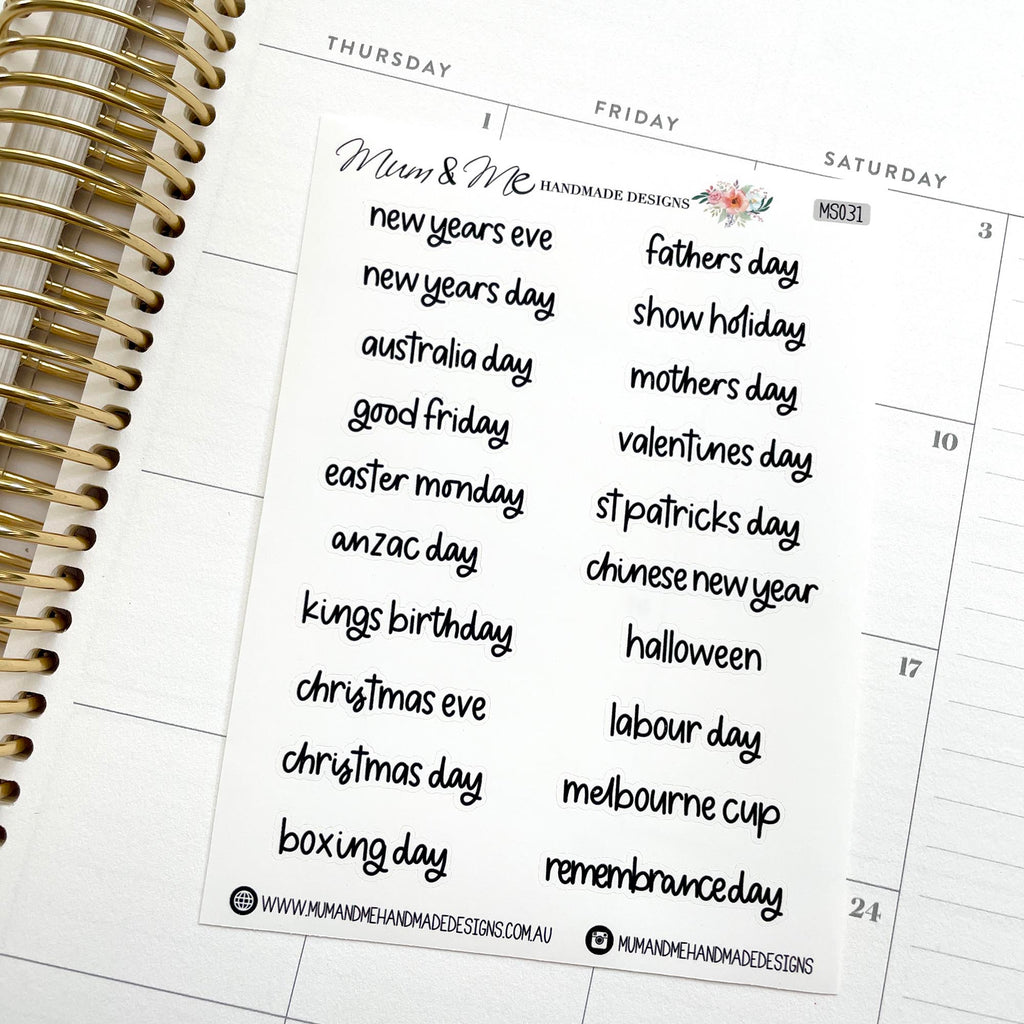 THURSDAY
FRIDAY
SATURDAY
1
3
10
17
24
Mum & Me HANDMADE DESIGNS
MS031
new years eve
new years day
australia day
good friday
easter monday
anzac day
kings birthday
christmas eve
christmas day
boxing day
fathers day
show holiday
mothers day
valentines day
st patricks day
chinese new year
halloween
labour day
melbourne cup
remembrance day
WWW.MUMANDMEHANDMADEDESIGNS.COM.AU
MUMANDMEHANDMADEDESIGNS